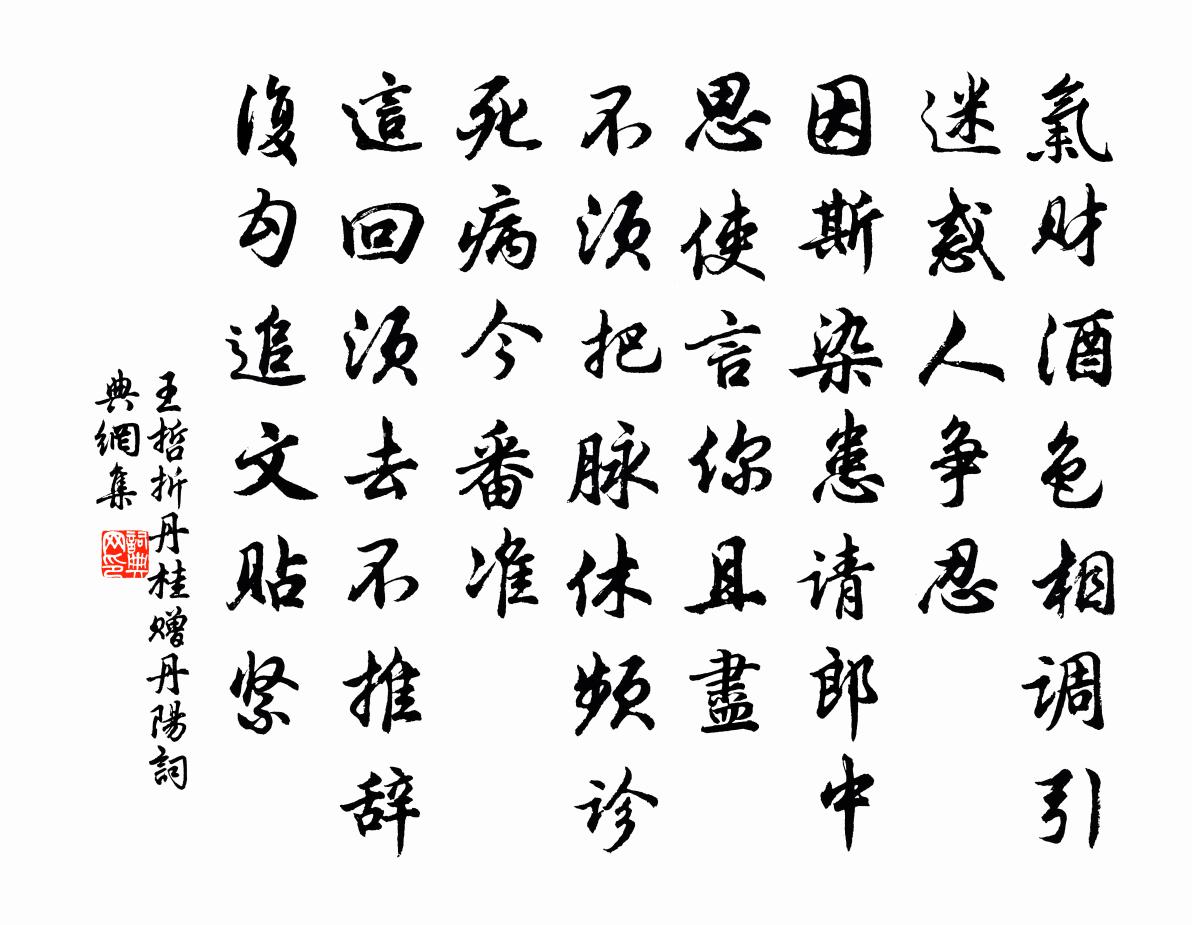 氣财酒色相調引
迷惑人争忍
因斯染患请郎中
思使言你且盡
不须把脉休频诊
死病今番准
這回须去不推辞
復勾追文貼紧
王哲折丹桂赠丹陽詞
典網集
詞典网印